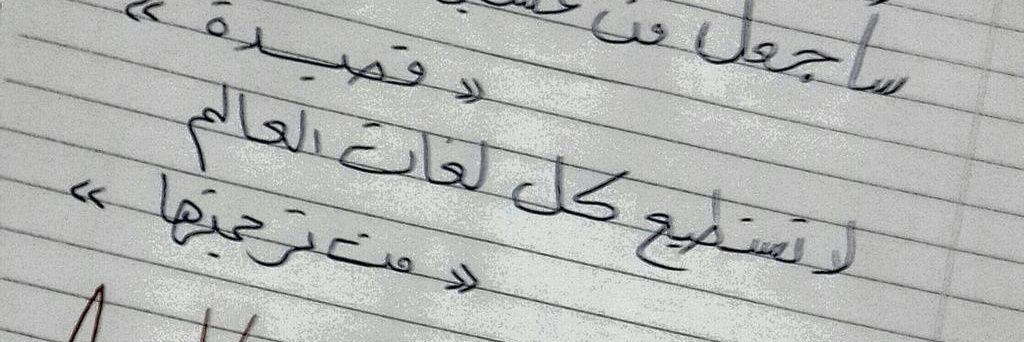 سأجعل من
« قصيدة »
لا تستطيع كل لغات العالم
« من ترجمتها »